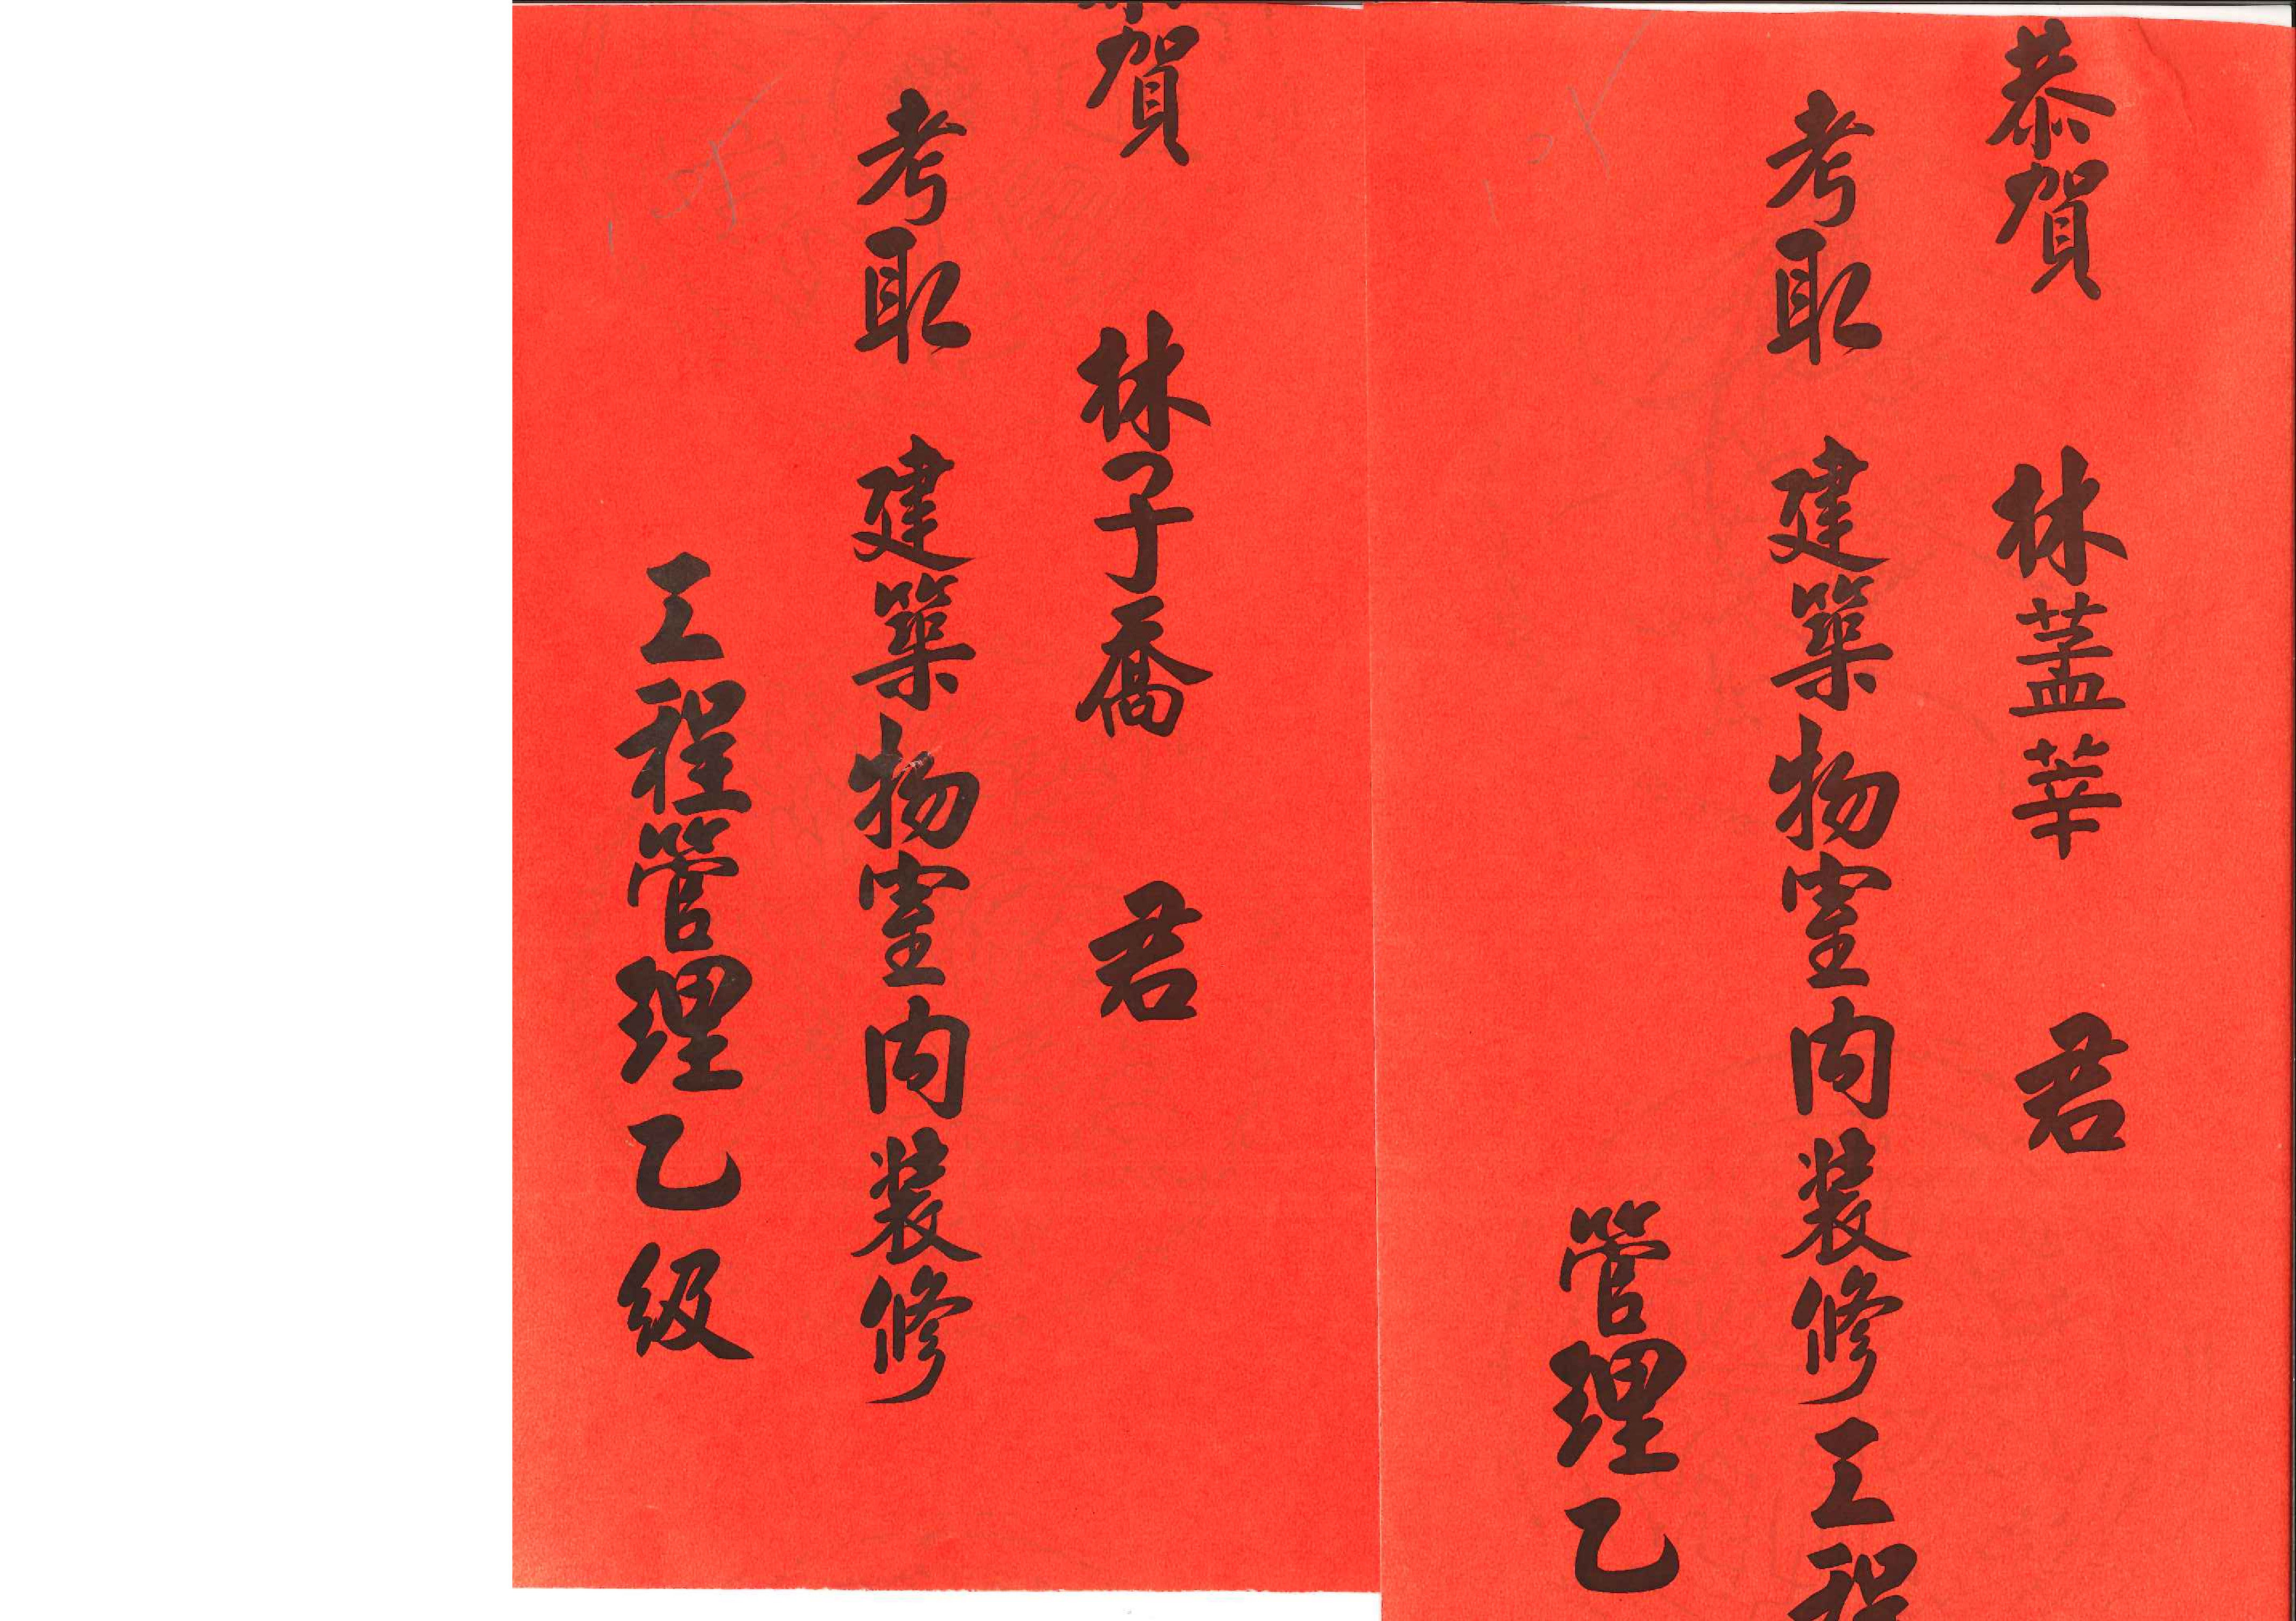 恭賀 林蓋莘 君
考取 建築物室內裝修工程
管理乙
賀 林子喬 君
考取 建築物室內裝修
工程管理乙級